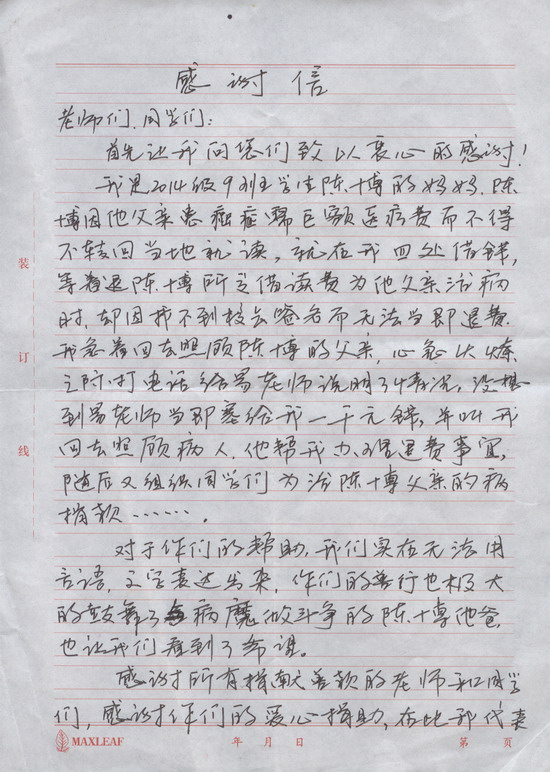 感谢信
老师们、同学们:
首先让我向您们致以衷心的感谢!
我是2014级9班学生陈博的妈妈,陈
博因他父亲患癌症需巨额医疗费而不得
不转回当地就读,就在我四处借钱,
等着退陈博所交借读费为他父亲治病
时,却因找不到校长签名而无法当即退费.
我急着回去照顾陈博的父亲,心急火燎
之际打电话给易老师说明了情况,没想
到易老师当即塞给我一千元钱,并叫我
回去照顾病人,他帮我办理退费事宜,
随后又组织同学们为治陈博父亲的病
捐款…….
对于你们的帮助,我们实在无法用
言语、文字表达出来,你们的善行也极大
的鼓舞了病魔做斗争的陈博他爸,
也让我们看到了希望。
感谢所有捐献善款的老师和同学
们,感谢你们的爱心捐助,在此我代表
装
订
线
MAXLEAF 年 月 日 第 页